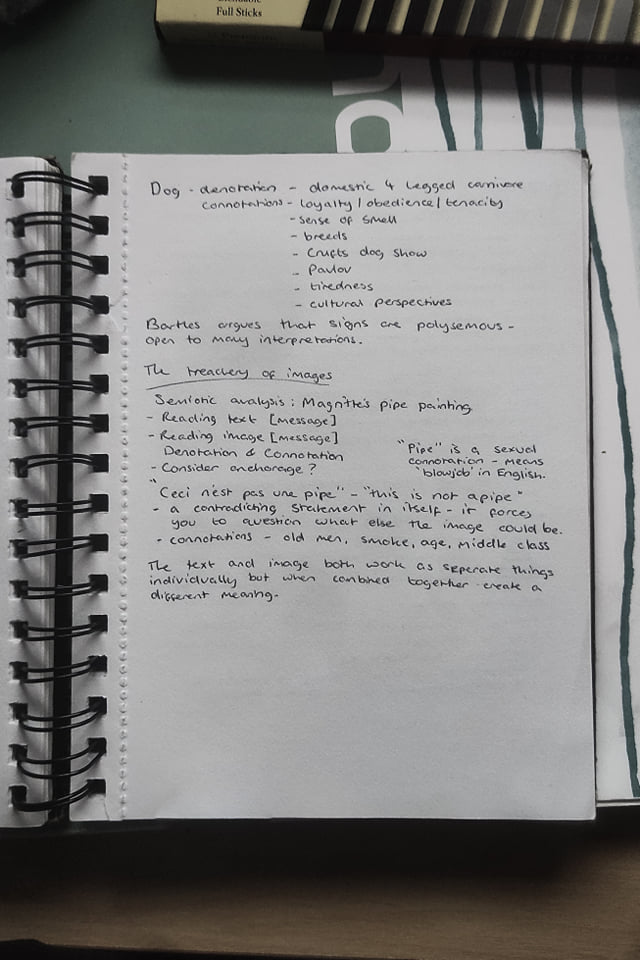 Full Sticks
Dog - denotation - domestic 4 legged carnivore
connotations - loyalty / obedience / tenacity
- sense of smell
- breeds
- Crufts dog show
- Pavlov
- tiredness
- cultural perspectives
Bartles argues that signs are polysemous -
open to many interpretations.
The treachery of images
Semiotic analysis : Magritte's pipe painting
- Reading text [message]
- Reading image [message]
Denotation & Connotation
- Consider anchorage ?
"Pipe" is a sexual
connotation - means
'blowjob' in English.
"Ceci n'est pas une pipe" - "this is not a pipe"
- a contradicting statement in itself - it forces
you to question what else the image could be.
- connotations - old men, smoke, age, middle class
The text and image both work as seperate things
individually but when combined together create a
different meaning.